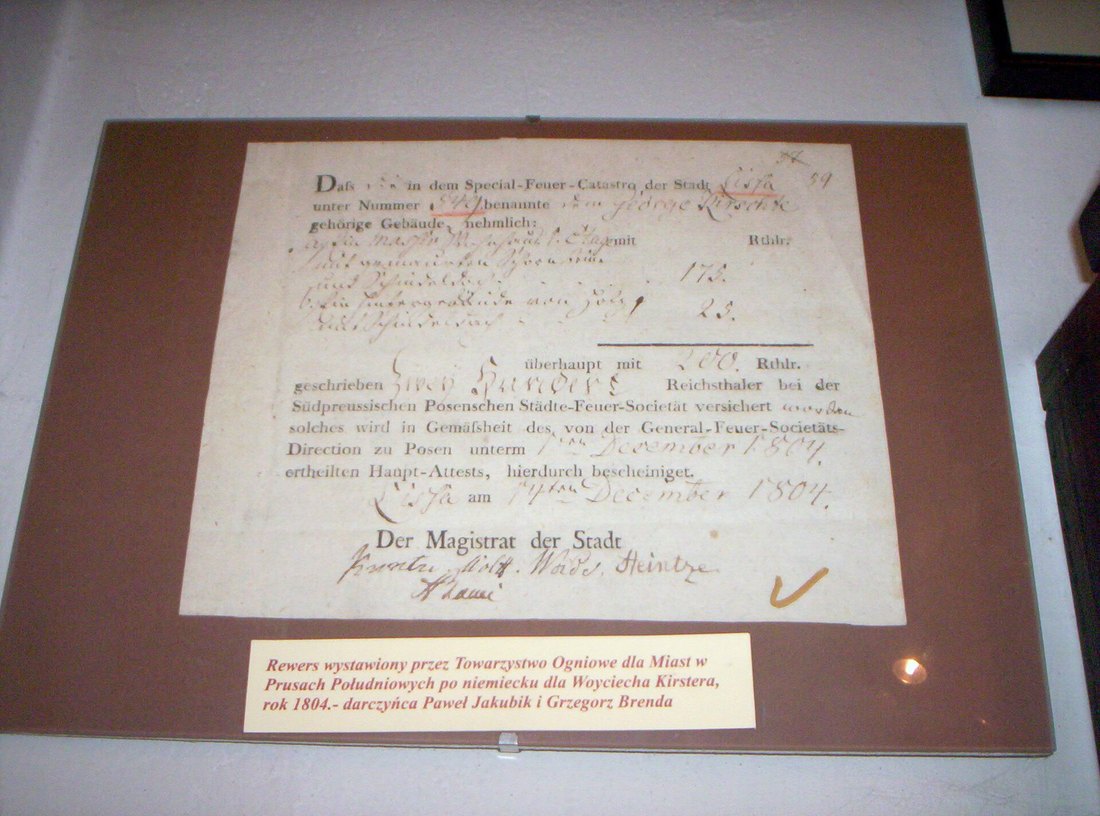 59
Daſs die in dem Special-Feuer-Catastro der Stadt Lissa
unter Nummer 549 benannte dem George Kirschke
gehörige Gebäude, nehmlich:
mit Rthlr.
und Schindeldach 175.
von Holz
25.
überhaupt mit 200. Rthlr.
geschrieben Zwey Hundert Reichsthaler bei der
Südpreussischen Posenschen Städte-Feuer-Societät versichert worden
solches wird in Gemäſsheit des von der General-Feuer-Societäts-
Direction zu Posen unterm 1ten December 1804.
ertheilten Haupt-Attests, hierdurch bescheiniget.
Lissa am 14ten December 1804.
Der Magistrat der Stadt
Heintze
Rewers wystawiony przez Towarzystwo Ogniowe dla Miast w
Prusach Południowych po niemiecku dla Woyciecha Kirstera,
rok 1804.- darczyńca Paweł Jakubik i Grzegorz Brenda